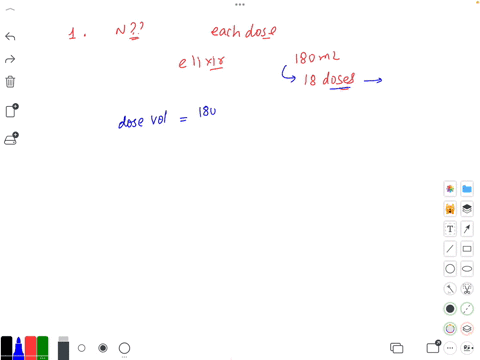 1. N?? each dose
elixir 180 mL
18 doses →
dose vol = 180